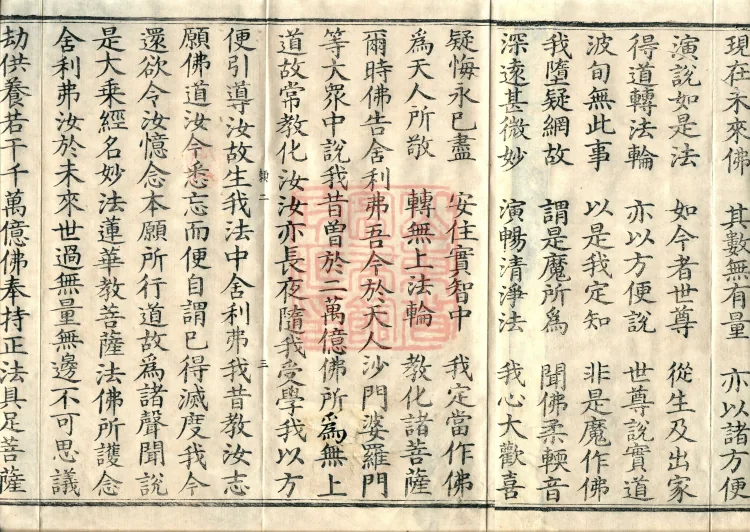 現在未來佛 其數無有量 亦以諸方便
演說如是法 如今者世尊 從生及出家
得道轉法輪 亦以方便說 世尊說實道
波旬無此事 以是我定知 非是魔作佛
我墮疑網故 謂是魔所為 聞佛柔輭音
深遠甚微妙 演暢清淨法 我心大歡喜
疑悔永已盡 安住實智中 我定當作佛
為天人所敬 轉無上法輪 教化諸菩薩
爾時佛告舍利弗吾今於天人沙門婆羅門
等大眾中說我昔曾於二萬億佛所為無上
道故常教化汝汝亦長夜隨我受學我以方
便引導汝故生我法中舍利弗我昔教汝志
願佛道汝今悉忘而便自謂已得滅度我今
還欲令汝憶念本願所行道故為諸聲聞說
是大乘經名妙法蓮華教菩薩法佛所護念
舍利弗汝於未來世過無量無邊不可思議
劫供養若干千萬億佛奉持正法具足菩薩